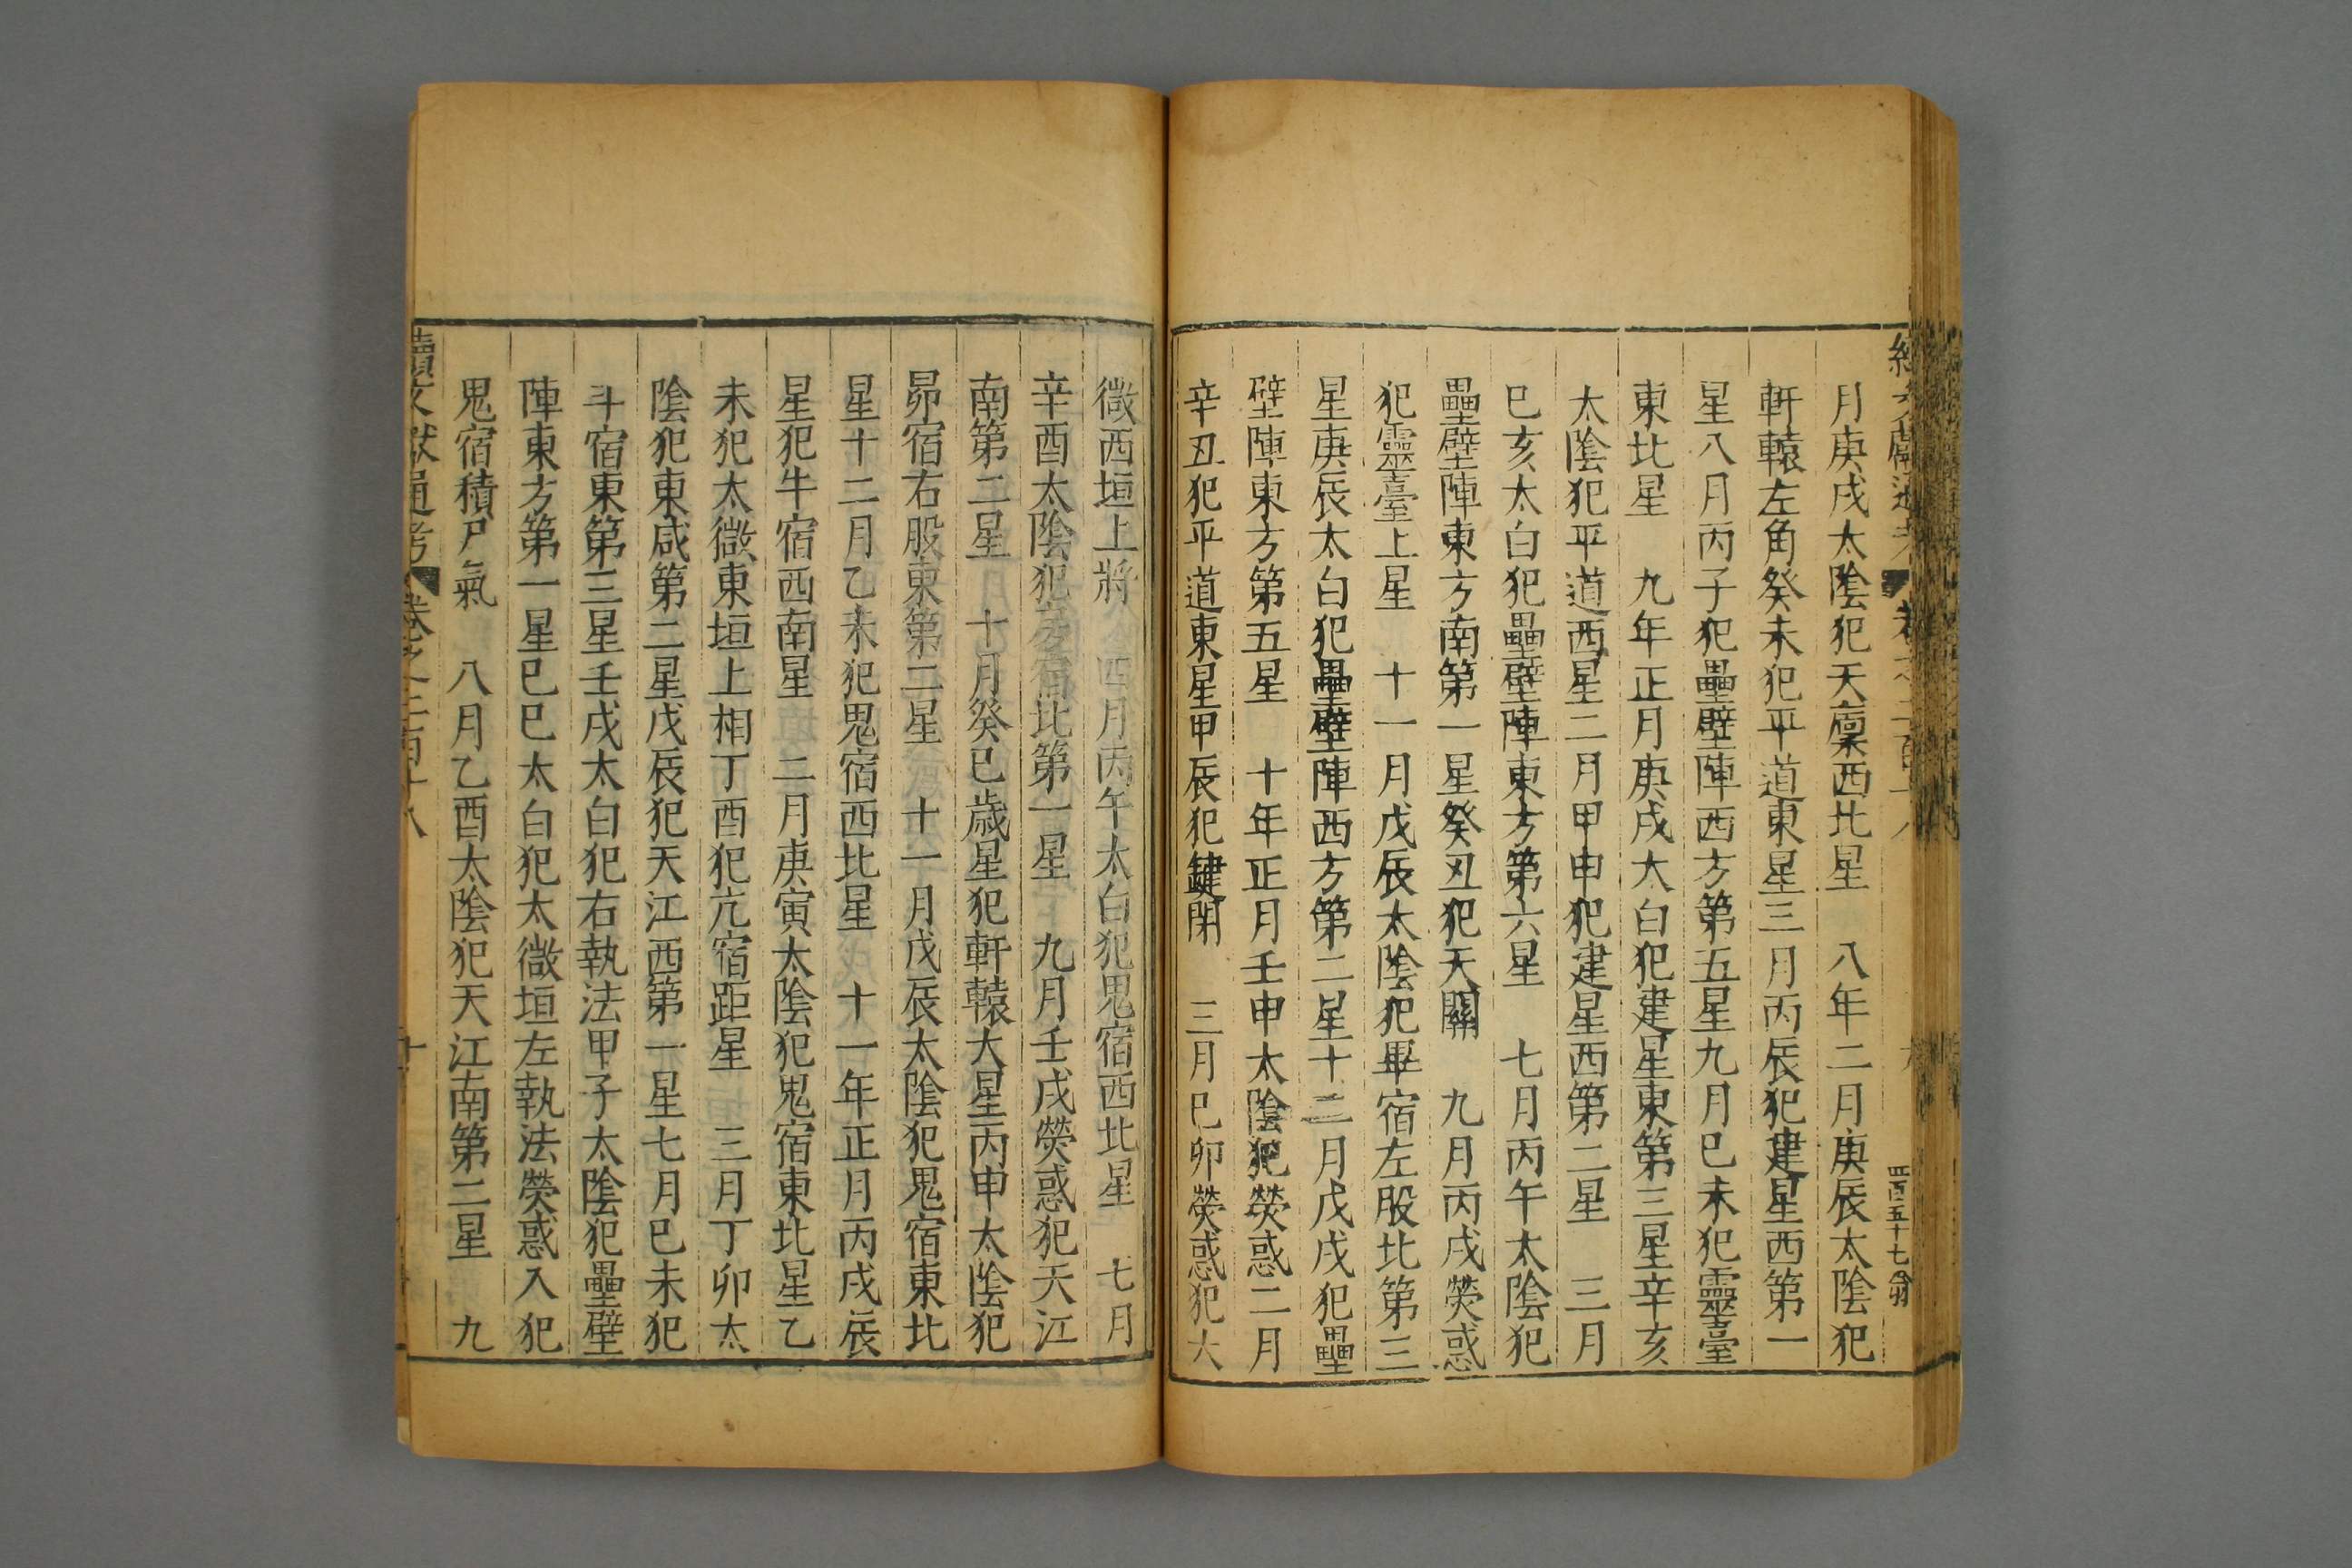 月庚戌太陰犯天廩西北星 八年二月庚辰太陰犯
軒轅左角癸未犯平道東星三月丙辰犯建星西第一
星八月丙子犯壘壁陣西方第五星九月巳未犯靈臺
東北星 九年正月庚戌太白犯建星東第三星辛亥
太陰犯平道西星二月甲申犯建星西第二星 三月
巳亥太白犯壘壁陣東方第六星 七月丙午太陰犯
壘壁陣東方南第一星癸丑犯天關 九月丙戌熒惑
犯靈臺上星 十一月戊辰太陰犯畢宿左股北第三
星庚辰太白犯壘壁陣西方第二星十二月戊戌犯壘
壁陣東方第五星 十年正月壬申太陰犯熒惑二月
辛丑犯平道東星甲辰犯鍵閉 三月巳卯熒惑犯太
微西垣上將 四月丙午太白犯鬼宿西北星 七月
辛酉太陰犯房宿北第一星 九月壬戌熒惑犯天江
南第二星 十月癸巳歲星犯軒轅大星丙申太陰犯
昴宿右股東第二星 十一月戊辰太陰犯鬼宿東北
星十二月乙未犯鬼宿西北星 十一年正月丙戌辰
星犯牛宿西南星 二月庚寅太陰犯鬼宿東北星乙
未犯太微東垣上相丁酉犯亢宿距星 三月丁卯太
陰犯東咸第二星戊辰犯天江西第一星七月巳未犯
斗宿東第三星壬戌太白犯右執法甲子太陰犯壘壁
陣東方第一星巳巳太白犯太微垣左執法熒惑入犯
鬼宿積尸氣 八月乙酉太陰犯天江南第二星 九
續文獻通考 卷之二百十八